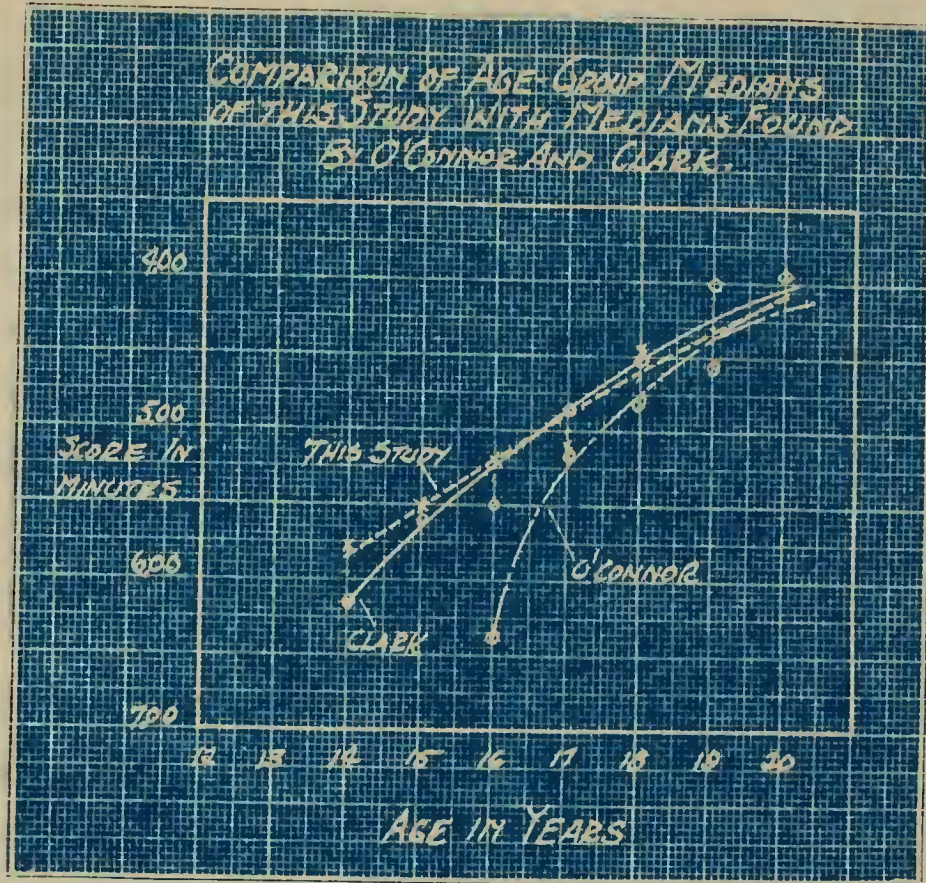 COMPARISON OF AGE-GROUP MEDIANS
OF THIS STUDY WITH MEDIANS FOUND
BY O'CONNOR AND CLARK.
400
500
SCORE IN
MINUTES
THIS STUDY
600
O'CONNOR
CLARK
700
12 13 14 15 16 17 18 19 20
AGE IN YEARS